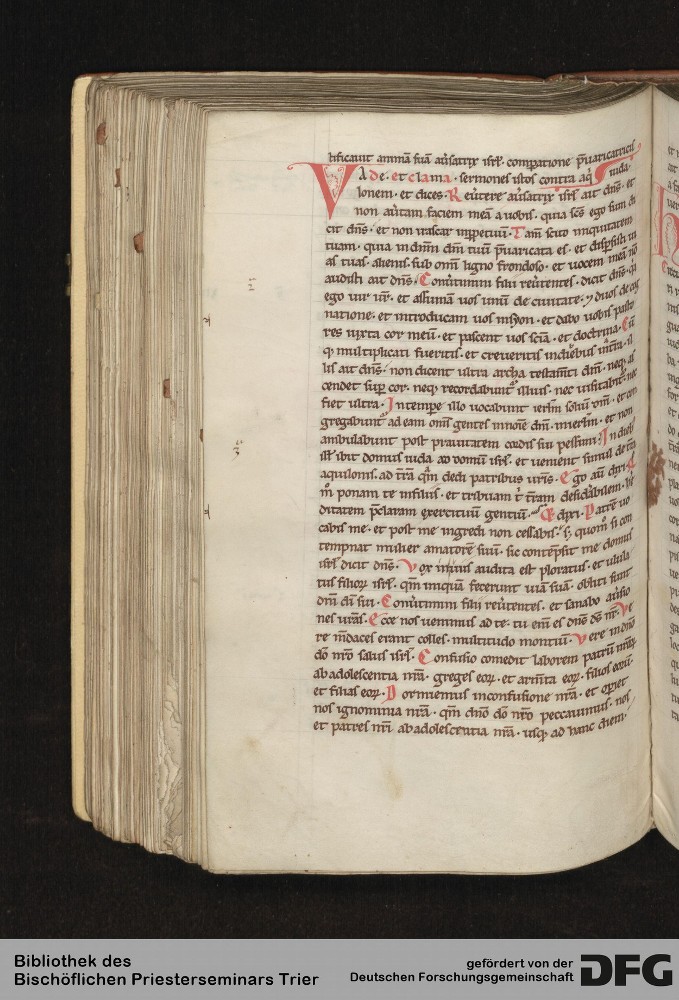 tificauit animā suā auˀsatrix isrł. comparatione p̄uaricatricis
VAde. et clama. sermones istos contra aq̇
lonem. et dices. Reuˀtere auˀsatrix isrł ait dn̄s. et
non auˀtam faciem meā a uobis. quia sc̄s ego sum di
cit dn̄s. et non irascar inppetuū. Tam̄ scito iniquitatem
tuam. quia in dn̄m dm̄ tuū p̄uaricata es. et dispsisti ui
as tuas alienis sub omī ligno frondoso. et uocem meā n̄
audisti ait dn̄s. Conuˀtimini filii reuˀtentes. dicit dn̄s. q̇a
ego uir ur̄. et assumā uos unū de ciuitate. ⁊ duos de cog
natione. et introducam uos insyon. et dabo uobis pasto
res iuxta cor meū. et pascent uos sciā. et doctrina. Cū
q; multiplicati fueritis. et creueritis indiebus in tr̄a. il
lis ait dn̄s. non dicent ultra archa testam̄ti dn̄i. neq; as
cendet sup cor. neq; recordabuntˀ illius. nec uisitabitˀ. nec
fiet ultra. In tempe illo uocabunt ierłm soliū dn̄i. et con
gregabuntˀ ad eam om̄s gentes innoīe dn̄i. inierłm. et non
ambulabunt post prauitatem cordis sui pessimi. In dieb;
illˀ ibit domus iuda. ad domū isrł. et uenient simul de tr̄a
aquilonis. ad tr̄a q̄m dedi patribus ur̄is. Ego aū dixi.
m̊ ponam te infiliis. et tribuam t̄ tr̄am desidˀabilem. he
ditatem p̄claram exercituū gentiū. Et dixi. Patrē uo
cabis me. et post me ingredi non cessabis. s; quom̊ si con
tempnat mulier amatorē suū. sic contēpsit me domus
isrł dicit dn̄s. Vox in uiis audita est ploratus. et ulula
tus filioꝝ isrł. q̄m iniquā fecerunt uiā suā. obliti sunt
dn̄i dī sui. Conuˀtimini filii reuˀtentes. et sanabo auˀsio
nes ur̄as. Ecce nos uenimus ad te. tu enī es dn̄s ds̄ nr̄. Ve
re m̄daces erant colles. multitudo montiū. Vere in dn̄o
dō nr̄o salus isrł. Confusio comedit laborem patrū nr̄oꝝ
ab adolescentia nr̄a. greges eoꝝ. et arm̄ta eoꝝ. filios eoꝝ.
et filias eoꝝ. Dormiemus inconfusione nr̄a. et opiet
nos ignominia nr̄a. q̄m dn̄o dō nr̄o peccauimus. nos
et patres nr̄i ab adolescentia nr̄a. usq; ad hanc diem.
Bibliothek des
Bischöflichen Priesterseminars Trier
gefördert von der
Deutschen Forschungsgemeinschaft
DFG